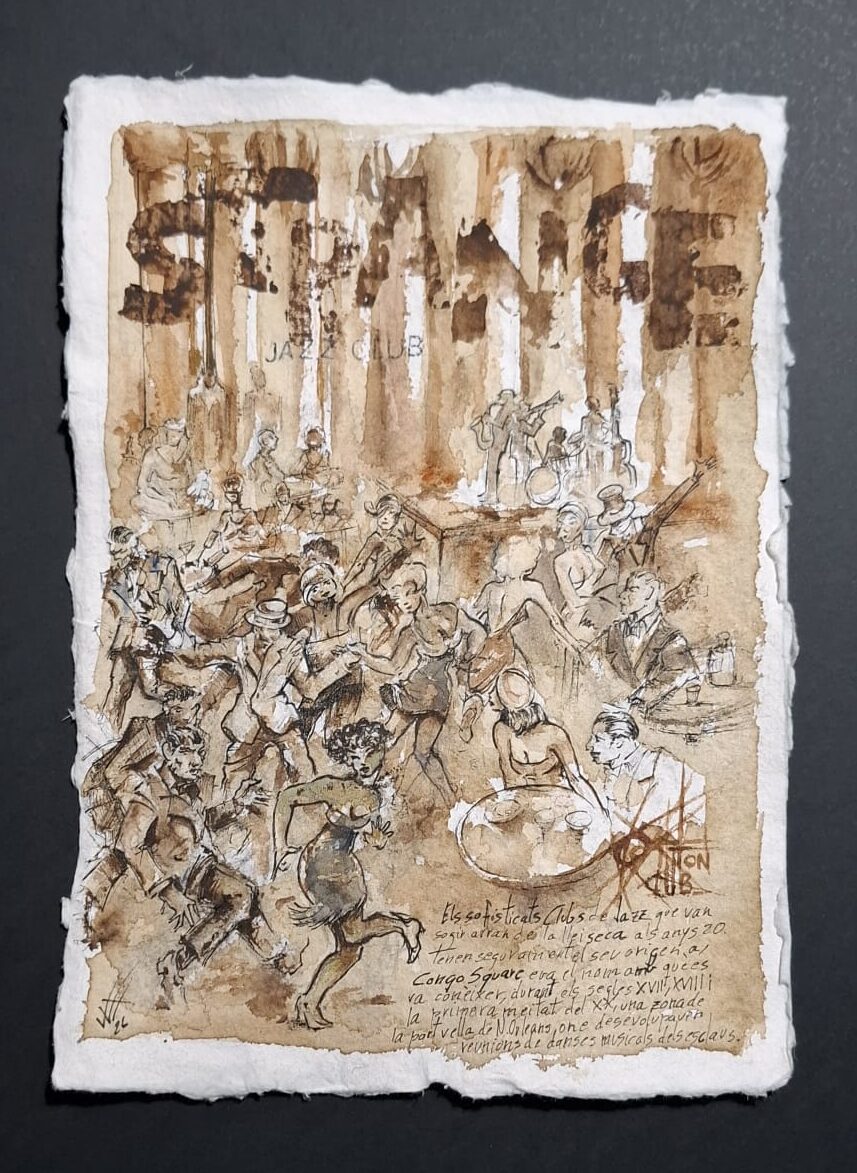 STRANGE
JAZZ CLUB
COTTON
CLUB
Els sofisticats Clubs de Jazz que van
sogir arran de la llei seca als anys 20.
Tenen segurament el seu origen a
Congo Square era el nom amb que es
va conèixer, durant els segles XVIII, XVIIII i
la primera meitat del XX, una zona de
la part vella de N. Orleans, on e desevolupaven
reunions de danses musicals dels esclaus.